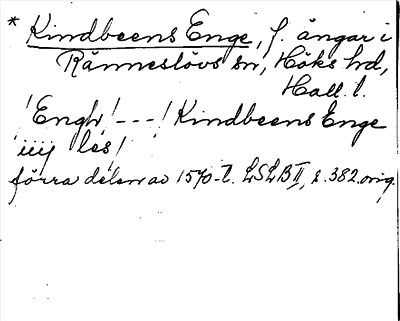 * Kindbeens Enge, f. ängar i
Ränneslövs sn, Höks hd,
Hall. l.
! Engh! --- ! Kindbeens Enge
iiij les!
förra delen av 1570-t. LSLB II, s. 382. orig.